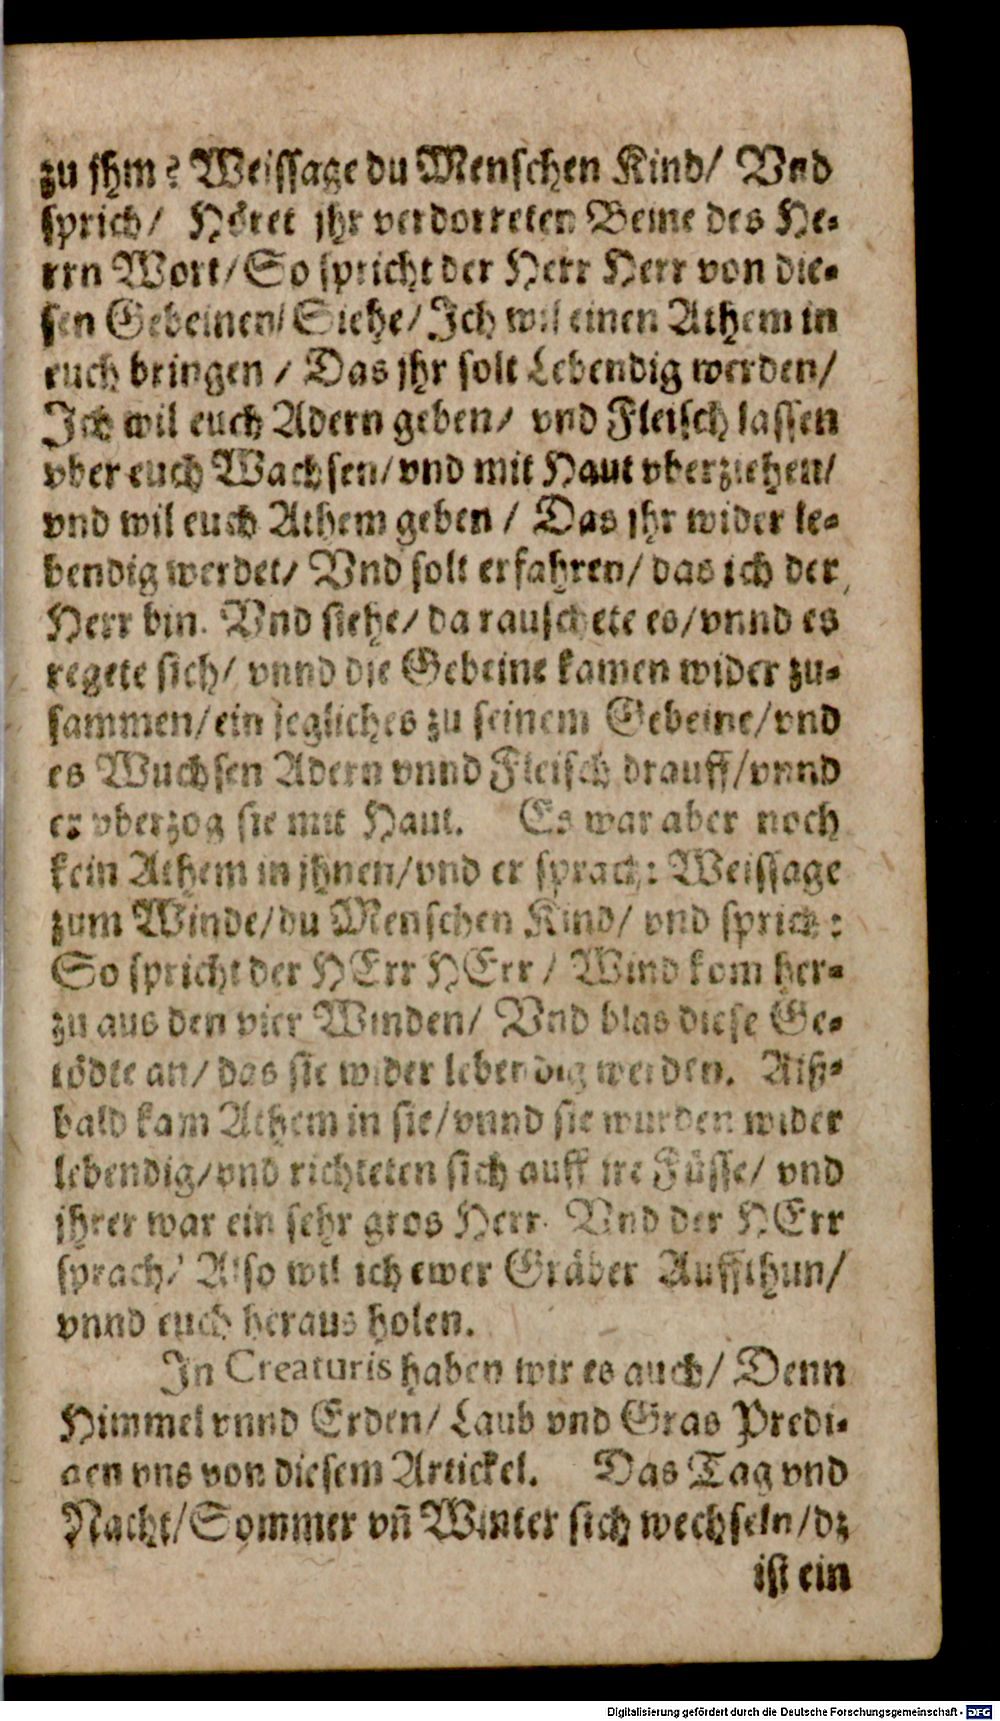 zu jhm? Weissage du Menschen Kind/ Vnd
sprich/ Höret jhr verdorreten Beine des He-
rrn Wort/ So spricht der Herr Herr von die-
sen Gebeinen/ Siehe/ Ich wil einen Athem in
euch bringen / Das jhr solt Lebendig werden/
Ich wil euch Adern geben/ vnd Fleisch lassen
vber euch Wachsen/ vnd mit Haut vberziehen/
vnd wil euch Athem geben / Das jhr wider le-
bendig werdet/ Vnd solt erfahren/ das ich der
Herr bin. Vnd siehe/ da rauschete es/ vnnd es
regete sich/ vnnd die Gebeine kamen wider zu-
sammen/ ein jegliches zu seinem Gebeine/ vnd
es Wuchsen Adern vnnd Fleisch drauff/ vnnd
er vberzog sie mit Haut. Es war aber noch
kein Athem in jhnen/ vnd er sprach: Weissage
zum Winde/ du Menschen Kind/ vnd sprich:
So spricht der HErr HErr / Wind kom her-
zu aus den vier Winden/ Vnd blas diese Ge-
tödte an/ das sie wider lebendig werden. Alß-
bald kam Athem in sie/ vnnd sie wurden wider
lebendig/ vnd richteten sich auff ire Füsse/ vnd
jhrer war ein sehr gros Herr. Vnd der HErr
sprach/ Also wil ich ewer Gräber Auffthun/
vnnd euch heraus holen.
In Creaturis haben wir es auch/ Denn
Himmel vnnd Erden/ Laub vnd Gras Predi-
gen vns von diesem Artickel. Das Tag vnd
Nacht/ Sommer vñ Winter sich wechseln/ dz
ist ein
Digitalisierung gefördert durch die Deutsche Forschungsgemeinschaft - DFG